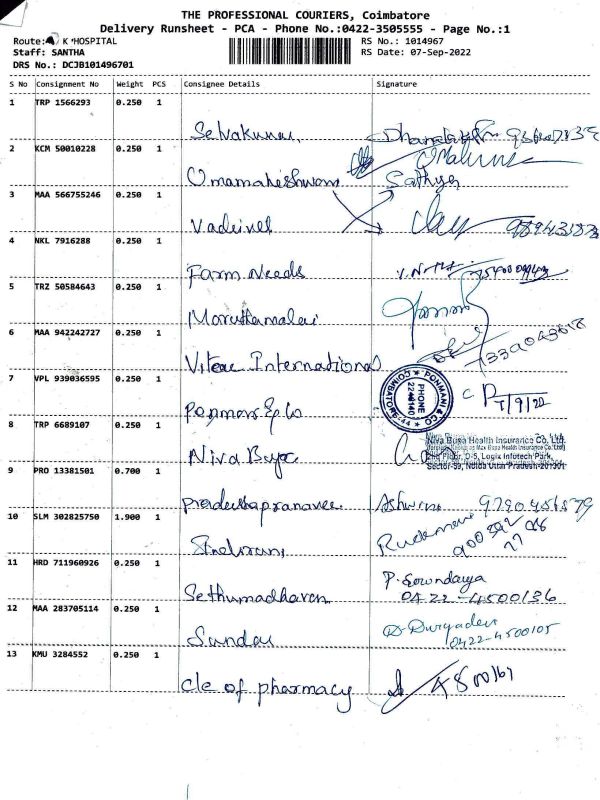 THE PROFESSIONAL COURIERS, Coimbatore
Delivery Runsheet - PCA - Phone No.:0422-3505555 - Page No.:1
Route: K HOSPITAL
RS No.: 1014967
Staff: SANTHA
RS Date: 07-Sep-2022
DRS No.: DCJB101496701
S No Consignment No Weight PCS Consignee Details Signature
1 TRP 1566293 0.250 1
Selvakumar
2 KCM 50010228 0.250 1
Omamaheshwari Sathya
3 MAA 566755246 0.250 1
Vadivel
4 NKL 7916288 0.250 1
Farm Needs
5 TRZ 50584643 0.250 1
Maruthamalai
6 MAA 942242727 0.250 1
Viteac International 7339043618
7 VPL 939036595 0.250 1
PONMANI & CO
COIMBATORE-44
PHONE
Ponmani & Co 7/9/22
8 TRP 6689107 0.250 1
Niva Bupa
Niva Bupa Health Insurance Co. Ltd.
2nd Floor, D-5, Logix Infotech Park,
Sector-59, Noida Uttar Pradesh-201301
9 PRO 13381501 0.700 1
pradeebapranavee Ashwini
10 SLM 302825750 1.900 1
11 HRD 711960926 0.250 1
P. Sowndarya
Sethumadhavan 0422-4500136
12 MAA 283705114 0.250 1
D. Durgadevi
Sundar 0422-4500105
13 KMU 3284552 0.250 1
cle of pharmacy 4500167